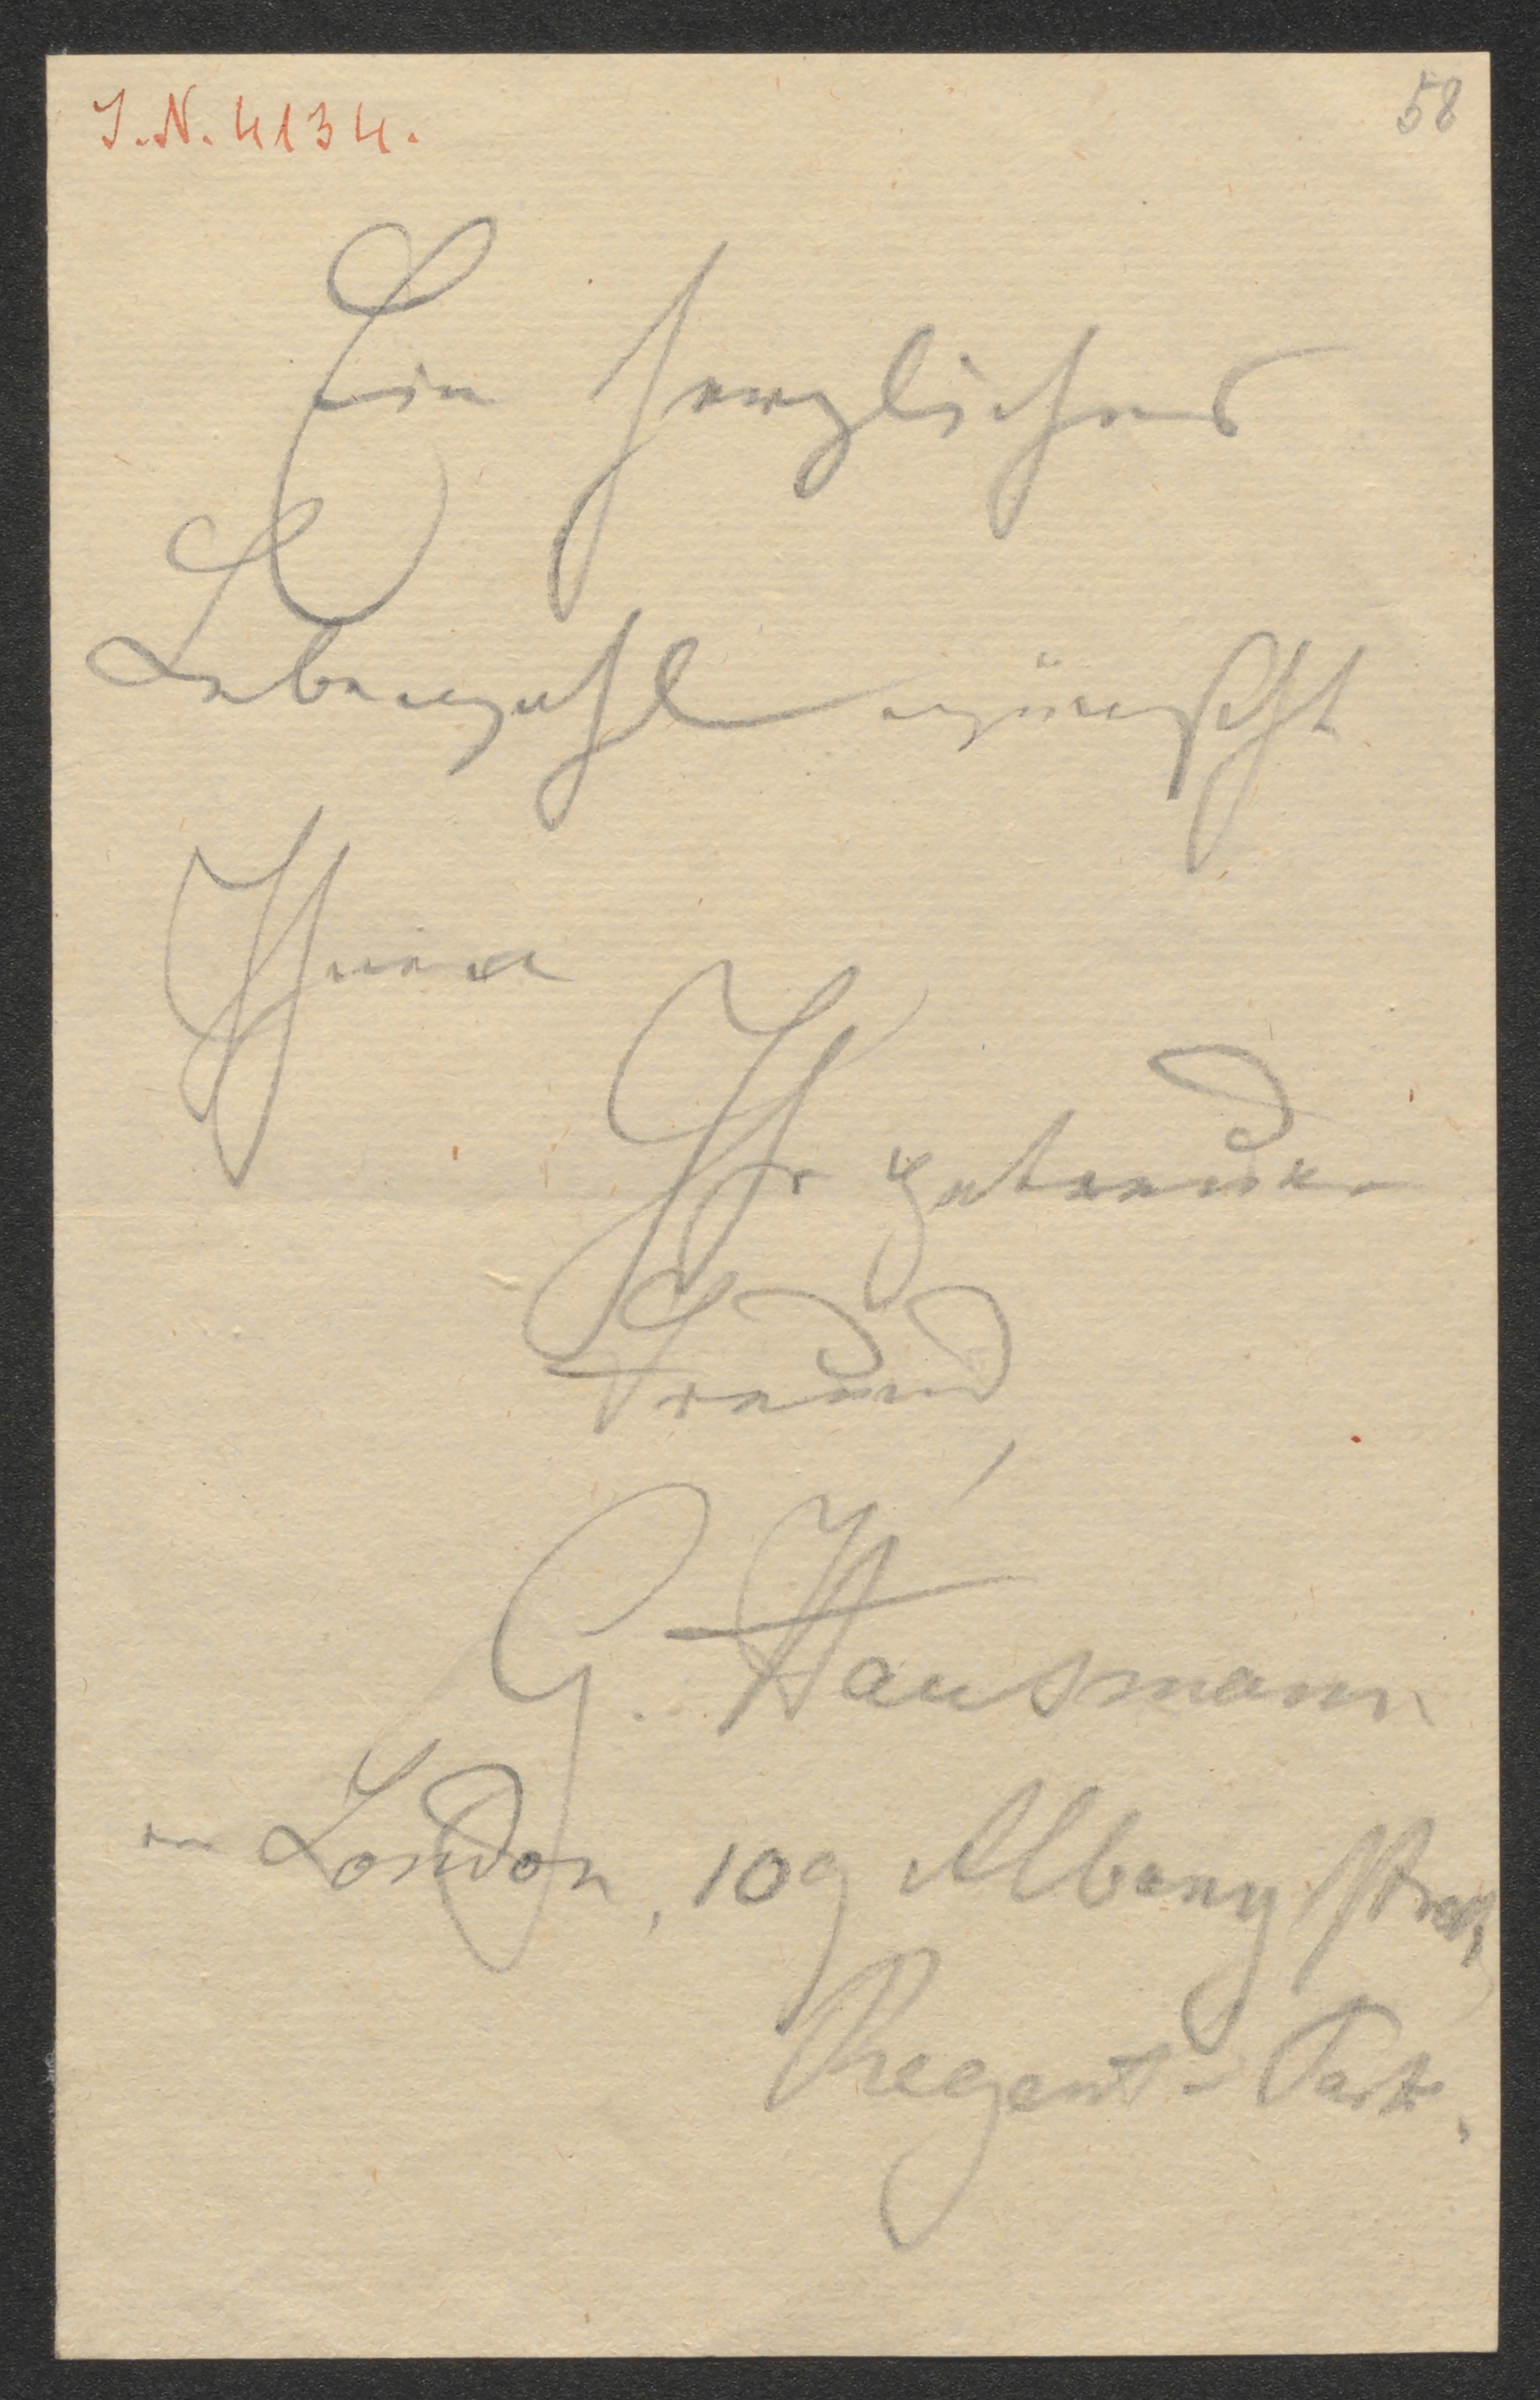 I.N. 4134.
58
Ein herzliches
Lebewohl wünscht
Ihnen
Ihr getreuer
Freund
G. Hausmann
in London, 109 Albany Street,
Regent-Park.